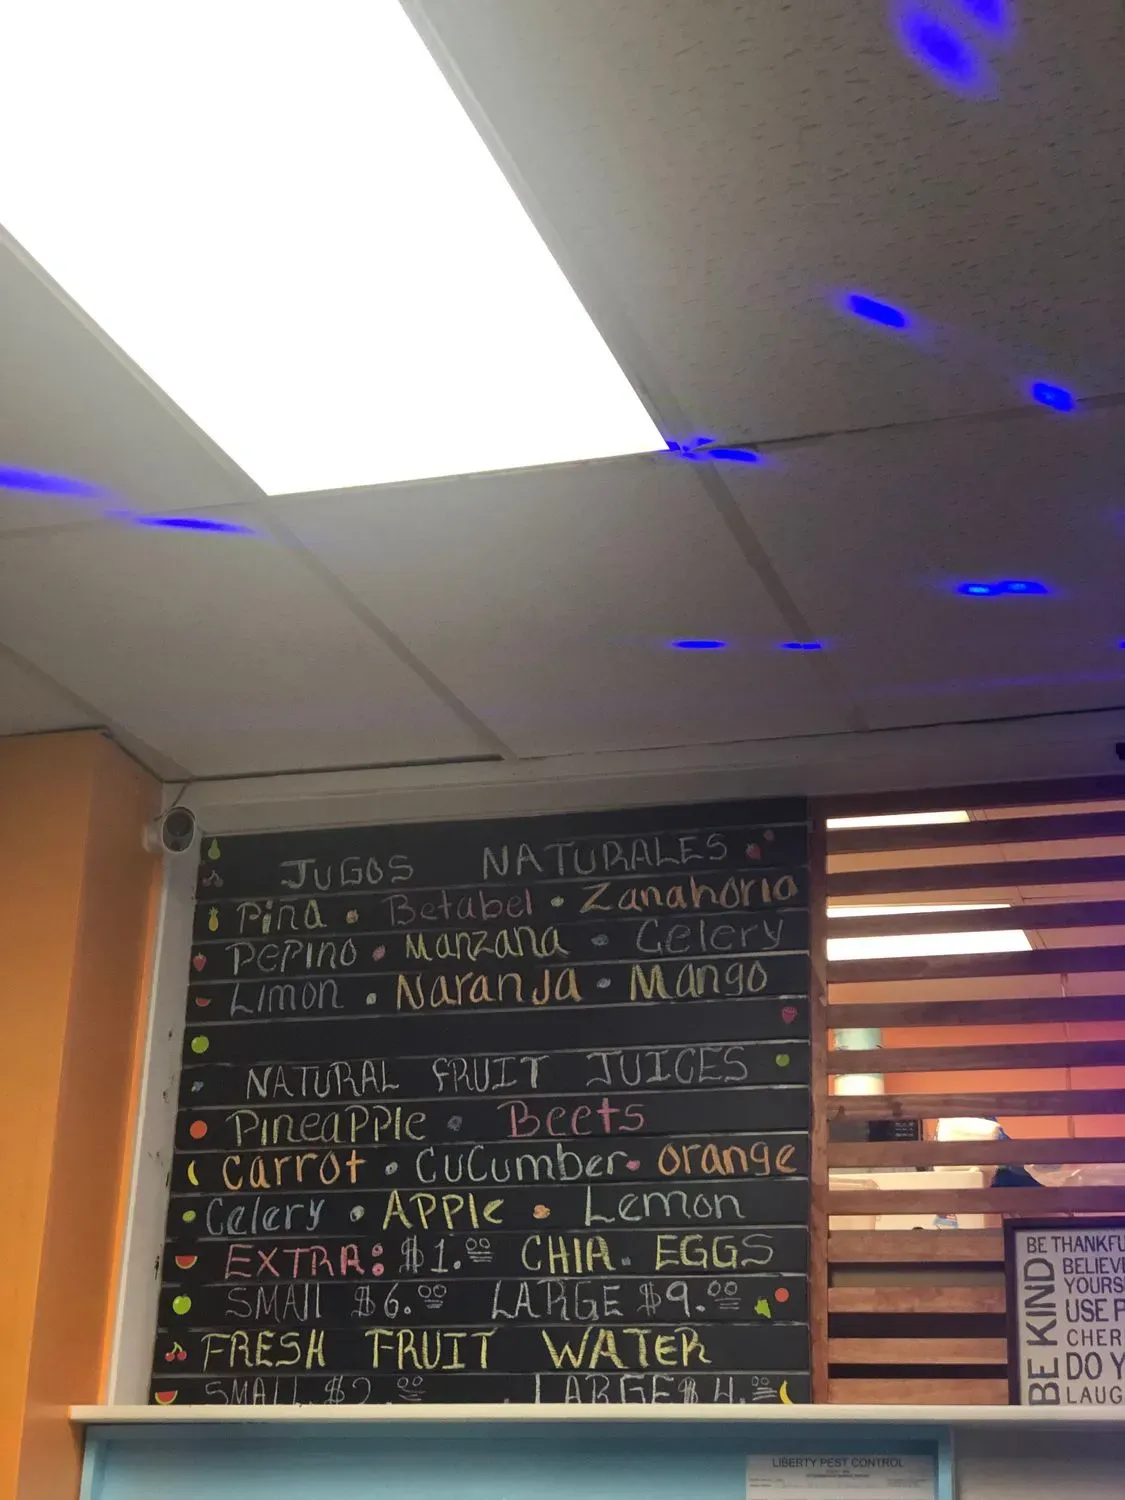 JUGOS NATURALES
Piña • Betabel • Zanahoria
Pepino • Manzana • Celery
Limon • Naranja • Mango
NATURAL FRUIT JUICES
Pineapple • Beets
Carrot • Cucumber • orange
Celery • Apple • Lemon
EXTRA: $1.00 CHIA • EGGS
SMAll $6.00 LARGE $9.00
FRESH FRUIT WATER
SMALL $2.00 LARGE $4.00
BE KIND
BE THANKFU
BELIEVE
YOURS
USE P
CHER
DO Y
LAUG
LIBERTY PEST CONTROL